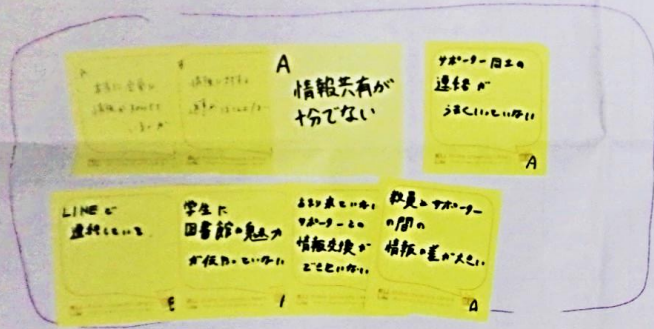 A
本当に全員に
情報が
情報に対する
A
情報共有が
十分でない
サポーター同士の
連絡が
うまくいっていない
A
LINEで
連絡していても
E
学生に
図書館の魅力
が伝わっていない
あまり来ていない
サポーターとの
情報交換が
できていない
教員とサポーター
の間の
情報の差が大きい
A